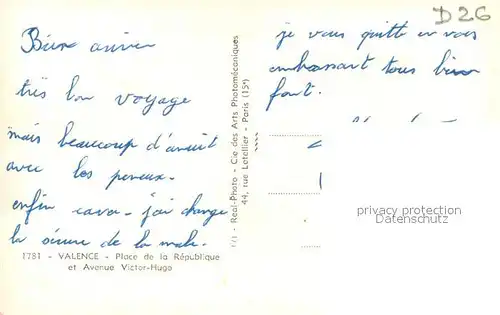 D26
Bien arrivée
très bon voyage
mais beaucoup d'arrêt
avec les pneus.
enfin cava. j'ai changé
la de la malle.
1781 - VALENCE - Place de la République
et Avenue Victor-Hugo
Real-Photo - Cie des Arts Photomécaniques
44, rue Letellier - Paris (15e)
je vous quitte en vous
embrassant tous bien
fort.
privacy protection
Datenschutz